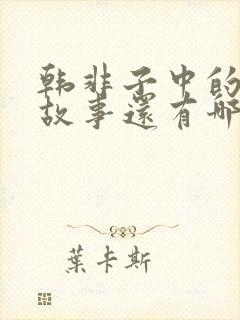 韩非子中的
故事還有哪
葉卡斯